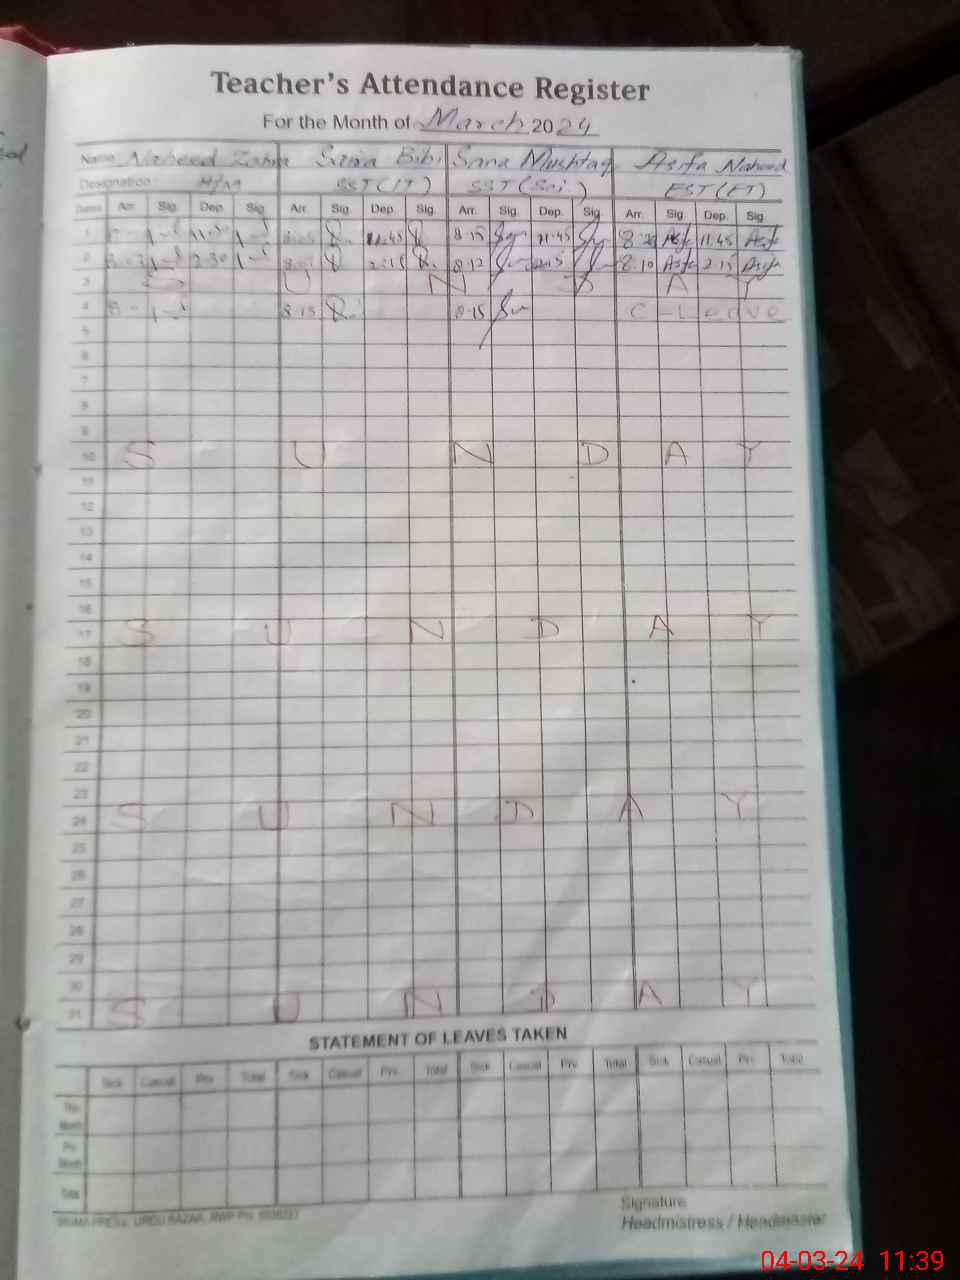 Teacher's Attendance Register
For the Month of March 2024
Name Naheed Zohra Saira Bibi Sana Mushtaq Asifa Naheed
Designation H/M SST (IT) SST (Sci.) EST (ET)
Dates Arr. Sig. Dep. Sig. Arr. Sig. Dep. Sig. Arr. Sig. Dep. Sig. Arr. Sig. Dep. Sig.
1 11:45 8:15 11:45 8:20 Asf 11:45 Asf
2 2:30 2:15 8:12 2:15 8:10 Asf 2:15 Asf
3 S U N D A Y
4 8:15 8:15 C-Leave
5
6
7
8
9
10 S U N D A Y
11
12
13
14
15
16
17 S U N D A Y
18
19
20
21
22
23
24 S U N D A Y
25
26
27
28
29
30
31 S U N D A Y
STATEMENT OF LEAVES TAKEN
Sick Casual Prv. Total Sick Casual Prv. Total Sick Casual Prv. Total Sick Casual Prv. Total
This Month
Prv. Month
Total
URDU BAZAR, RWP
Signature
Headmistress / Headmaster
04-03-24 11:39